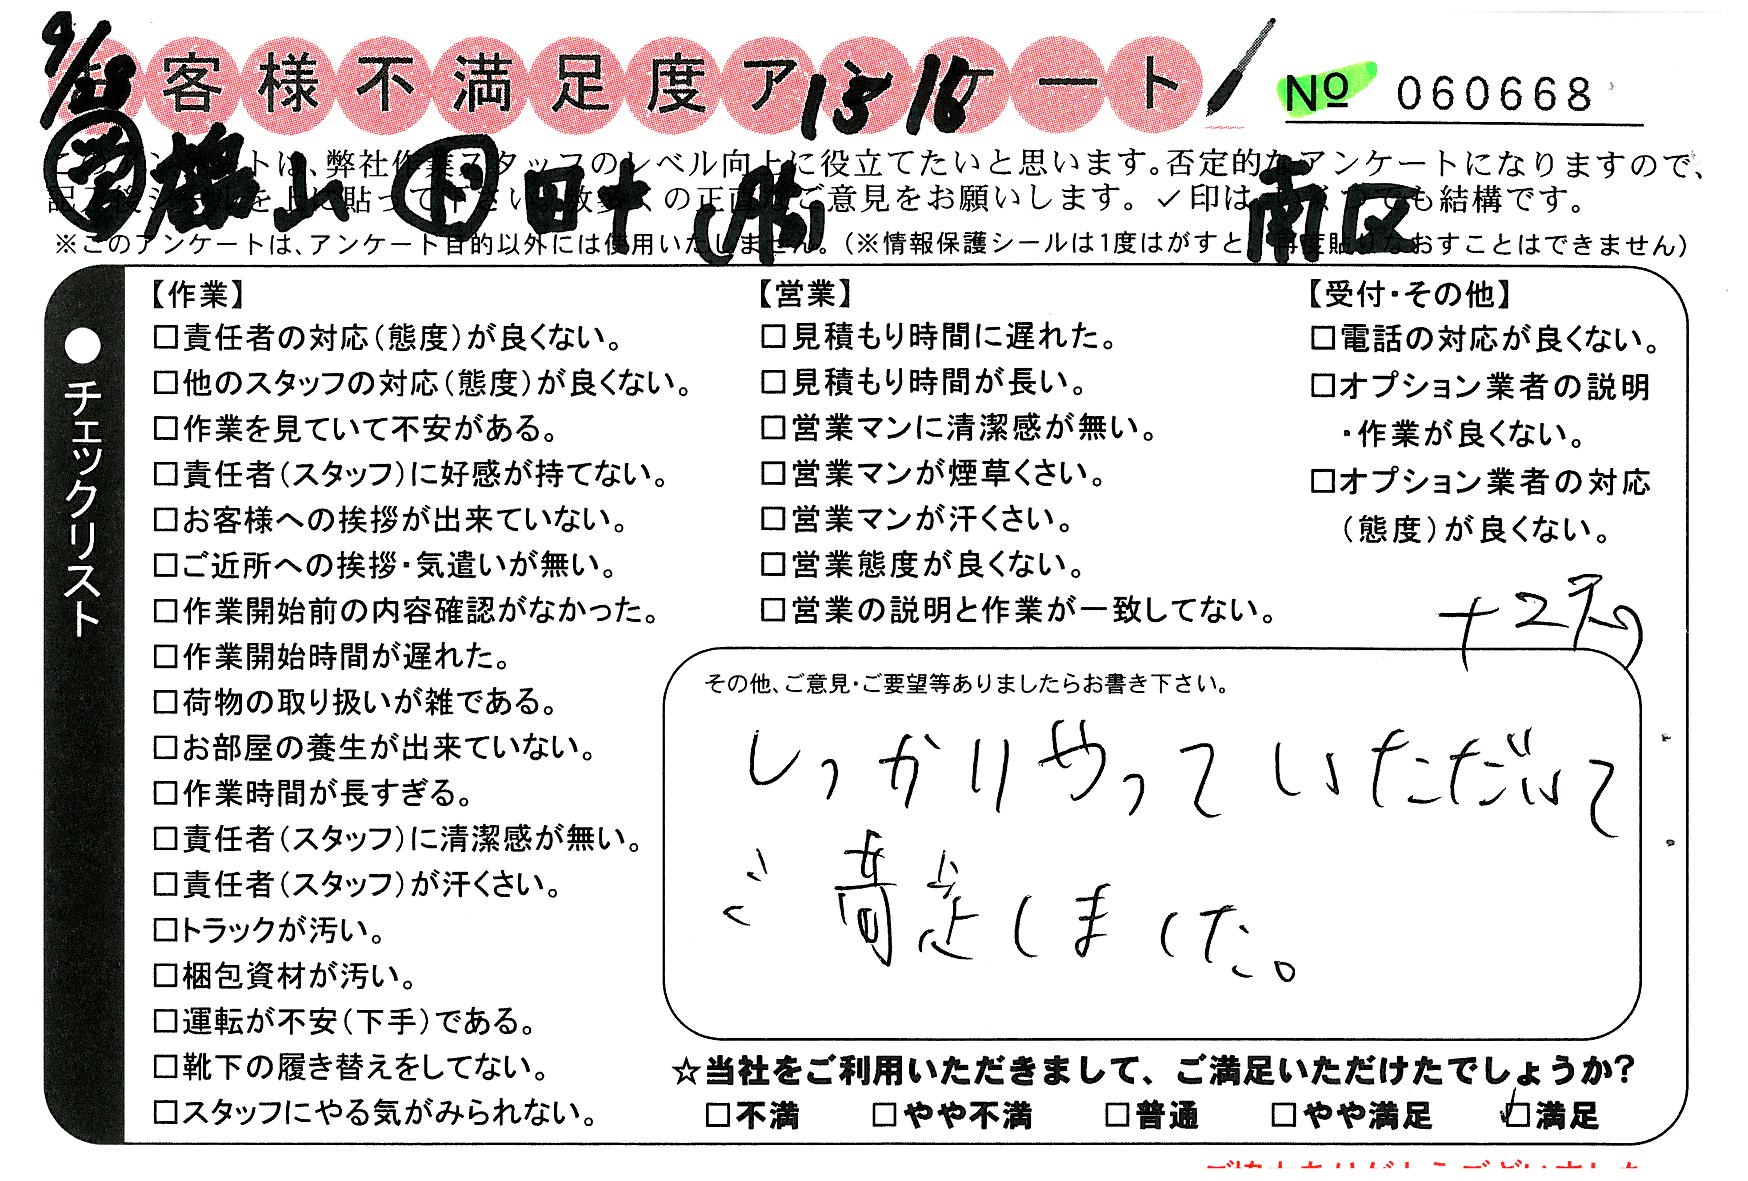 お客様不満足度アンケート
№ 060668
1318
このアンケートは、弊社作業スタッフのレベル向上に役立てたいと思います。否定的なアンケートになりますので、
記入後シールを上に貼って下さい。数多くの正直なご意見をお願いします。✓印はいくつでも結構です。
南区
※このアンケートは、アンケート目的以外には使用いたしません。(※情報保護シールは1度はがすと、再度貼りなおすことはできません)
●チェックリスト
【作業】
□責任者の対応(態度)が良くない。
□他のスタッフの対応(態度)が良くない。
□作業を見ていて不安がある。
□責任者(スタッフ)に好感が持てない。
□お客様への挨拶が出来ていない。
□ご近所への挨拶・気遣いが無い。
□作業開始前の内容確認がなかった。
□作業開始時間が遅れた。
□荷物の取り扱いが雑である。
□お部屋の養生が出来ていない。
□作業時間が長すぎる。
□責任者(スタッフ)に清潔感が無い。
□責任者(スタッフ)が汗くさい。
□トラックが汚い。
□梱包資材が汚い。
□運転が不安(下手)である。
□靴下の履き替えをしてない。
□スタッフにやる気がみられない。
【営業】
□見積もり時間に遅れた。
□見積もり時間が長い。
□営業マンに清潔感が無い。
□営業マンが煙草くさい。
□営業マンが汗くさい。
□営業態度が良くない。
□営業の説明と作業が一致してない。
【受付・その他】
□電話の対応が良くない。
□オプション業者の説明
・作業が良くない。
□オプション業者の対応
(態度)が良くない。
その他、ご意見・ご要望等ありましたらお書き下さい。
しっかりやっていただいて
ご満足しました。
☆当社をご利用いただきまして、ご満足いただけたでしょうか?
□不満 □やや不満 □普通 □やや満足 ☑満足
ご協力ありがとうございました